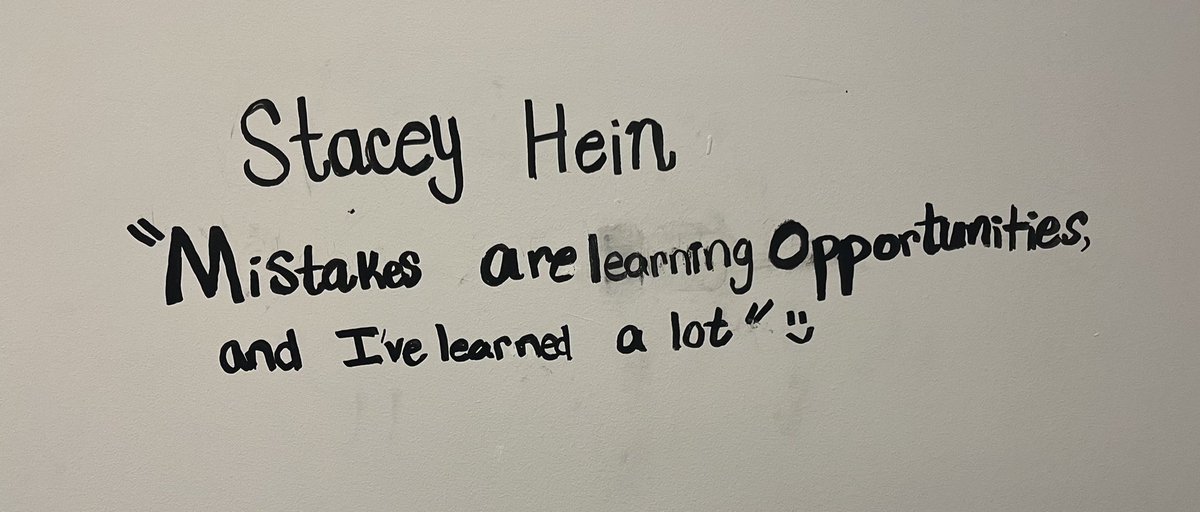 Stacey Hein
"Mistakes are learning Opportunities,
and I've learned a lot" :)